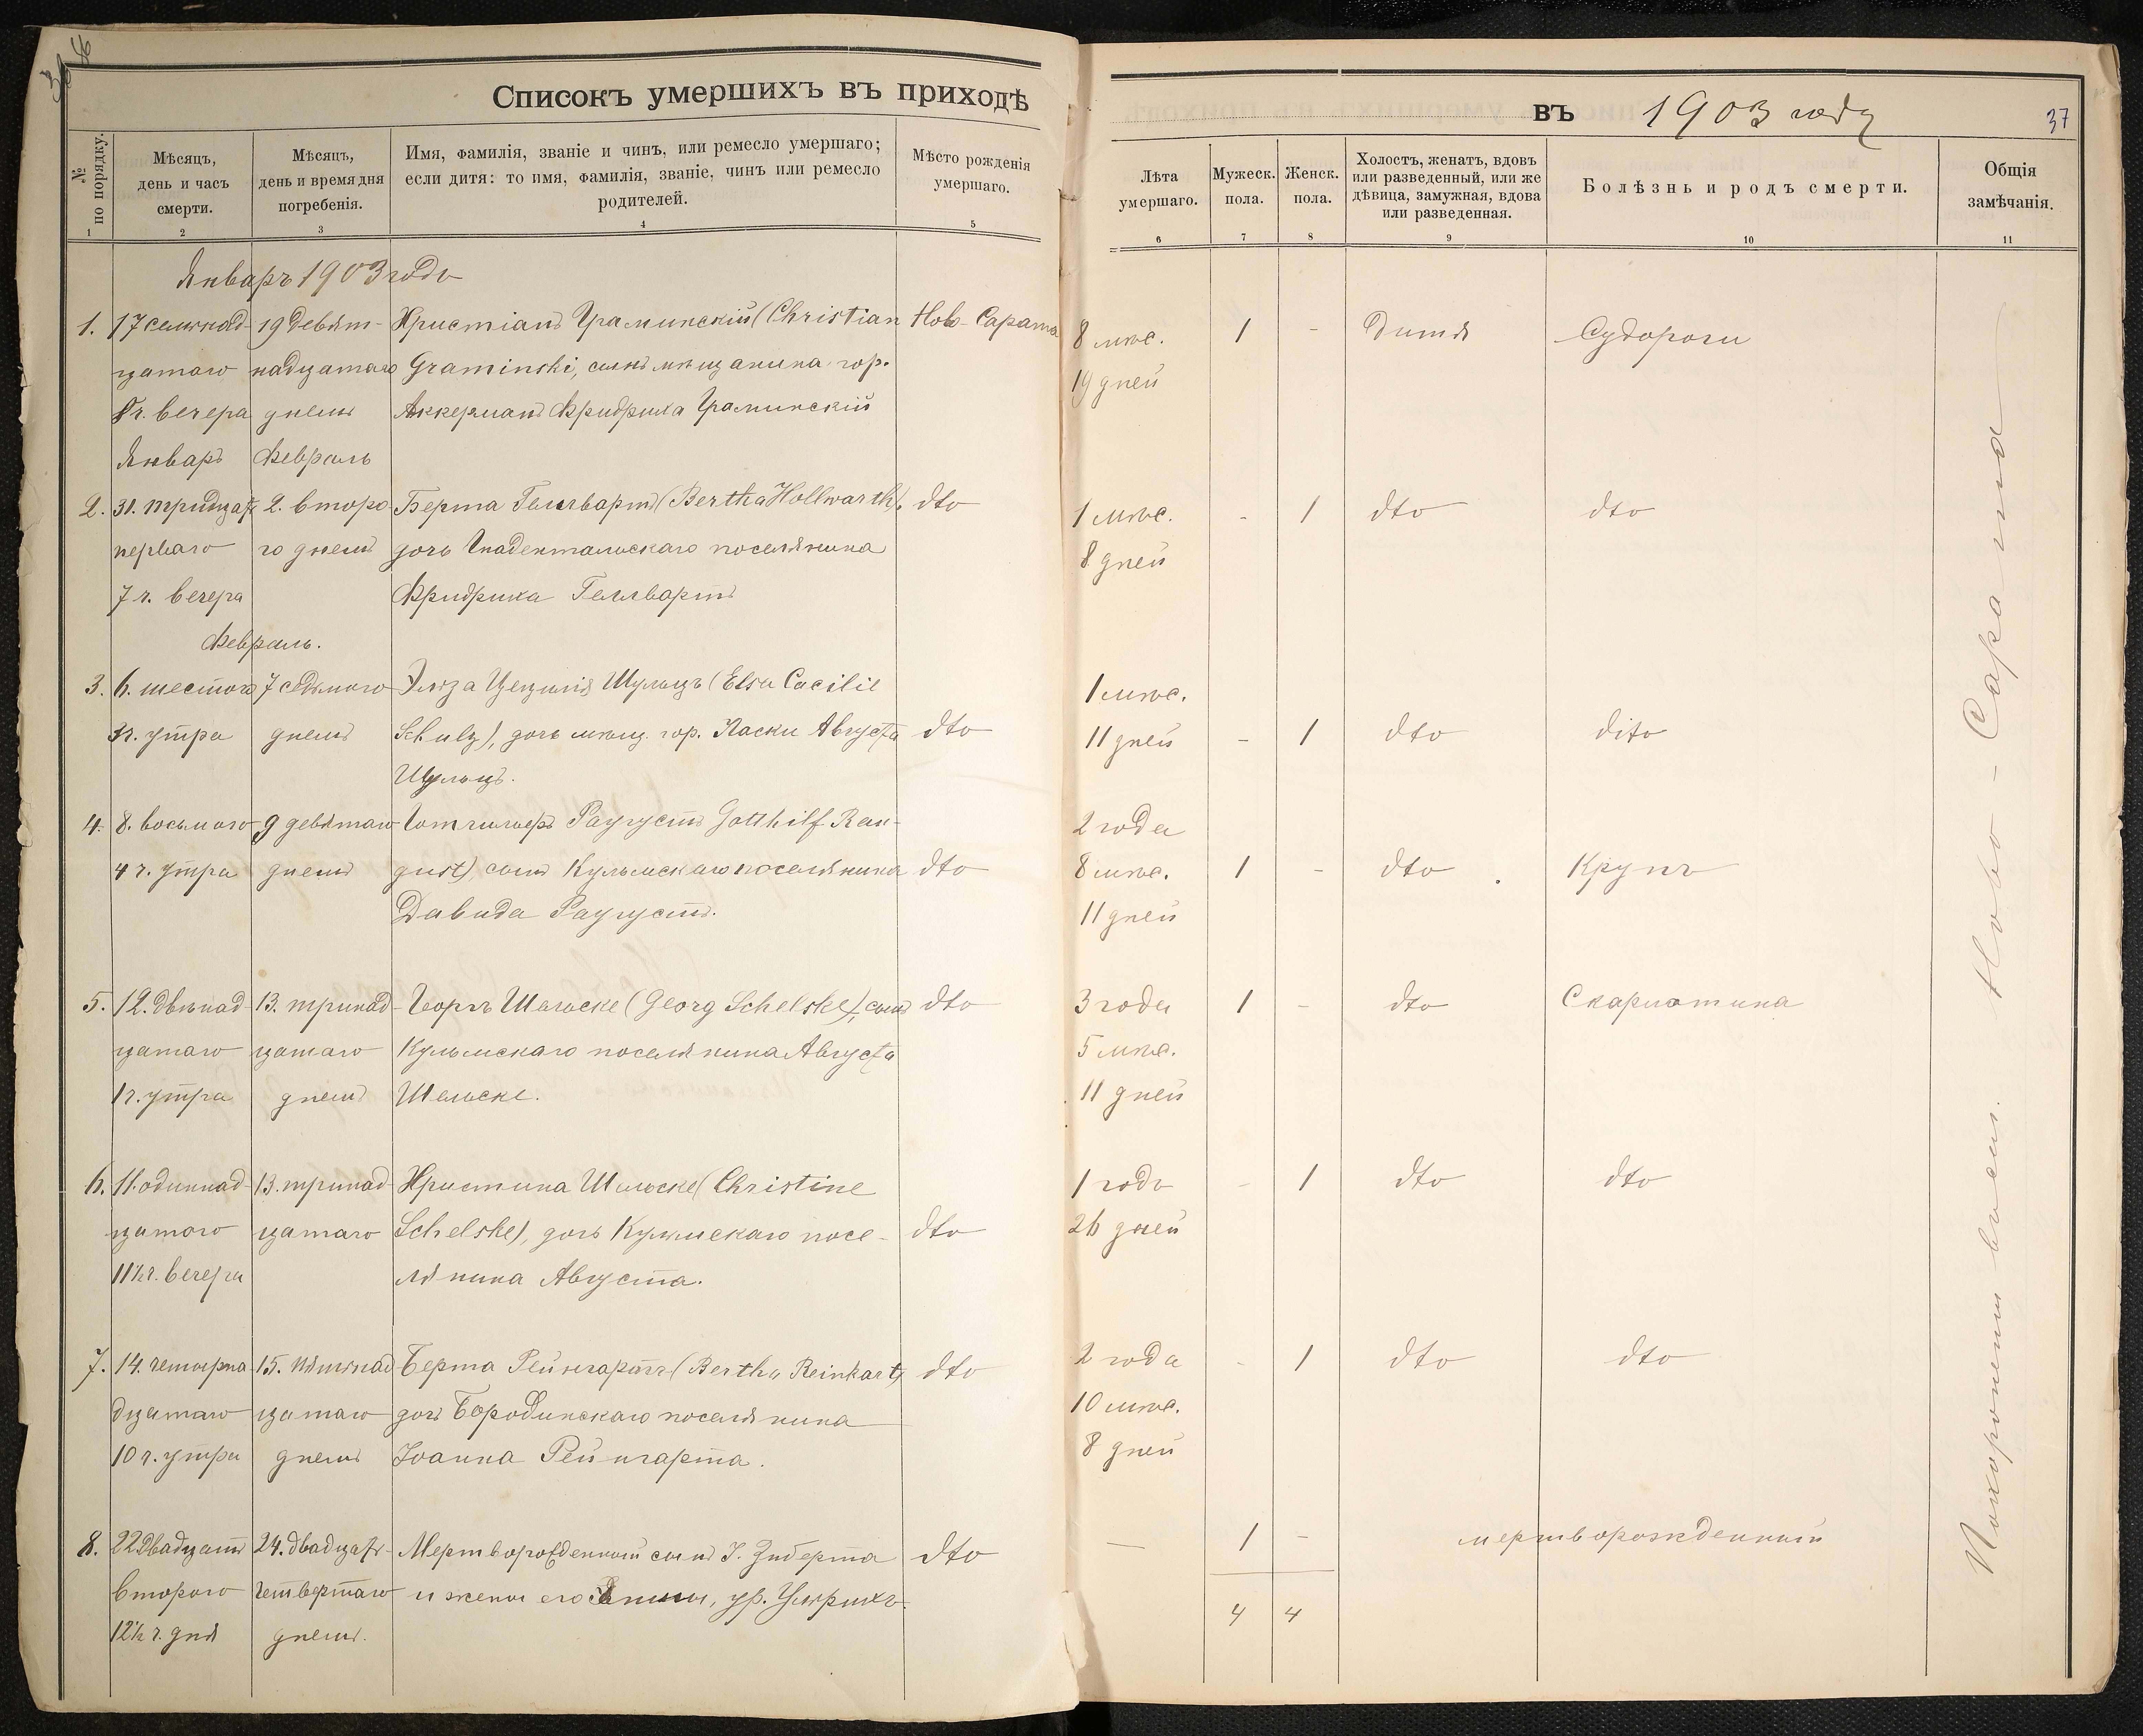 Списокъ умершихъ въ приходѣ
въ 1903 году
37
№ по порядку.
Мѣсяцъ, день и часъ смерти.
Мѣсяцъ, день и время дня погребенія.
Имя, фамилія, званіе и чинъ, или ремесло умершаго; если дитя: то имя, фамилія, званіе, чинъ или ремесло родителей.
Мѣсто рожденія умершаго.
Лѣта умершаго.
Мужеск. пола.
Женск. пола.
Холостъ, женатъ, вдовъ или разведенный, или же дѣвица, замужная, вдова или разведенная.
Болѣзнь и родъ смерти.
Общія замѣчанія.
1 2 3 4 5 6 7 8 9 10 11
Январь 1903 года
1. 17 семнад- 19 девят- Христіанъ Граминскій (Christian Ново-Сарата 8 мѣс. 1 - Дитя Судороги
цатаго надцатаго Graminski, сынъ мѣщанина гор. 19 дней
8 ч. вечера днемъ Аккерманъ Фридриха Граминскій
Январь Февраль
2. 31. тридцат. 2. второ- Берта Гельвартъ (Bertha Hollwarth), dto 1 мѣс. - 1 dto dto
перваго го днемъ дочь Гнадентальскаго поселянина 8 дней
7 ч. вечера Фридриха Гельвартъ
Февраль.
3. 6. шестого 7 седьмого Эльза Цецилія Шульцъ (Elsa Cacilie 1 мѣс.
ч. утра днемъ Schulz), дочь мѣщ. гор. Августа dto 11 дней - 1 dto dito
Шульцъ.
4. 8. восьмого 9 девятаго Готгильфъ Раугустъ Gotthilf Rau- 2 года
4 ч. утра днемъ gust), сынъ Кульмскаго поселянина dto 8 мѣс. 1 - dto Крупъ
Давида Раугустъ. 11 дней
5. 12. двѣнад- 13. тринад- Георгъ Шельске (Georg Schelske), сынъ dto 3 года 1 - dto Скарлатина
цатаго цатаго Кульмскаго поселянина Августа 5 мѣс.
1 ч. утра днемъ Шельске. 11 дней
6. 11. одиннад- 13. тринад- Христина Шельске (Christine 1 годъ - 1 dto dto
цатаго цатаго Schelske), дочь Кульмскаго посе- dto 26 дней
11½ ч. вечера лянина Августа.
7. 14. четырна- 15. пятнад- Берта Рейнгартъ (Bertha Reinhart) dto 2 года - 1 dto dto
дцатаго цатаго дочь Бородинскаго поселянина 10 мѣс.
10 ч. утра днемъ Іоанна Рейнгарта. 8 дней
8. 22 двадцать 24. двадцать- Мертворожденный сынъ І. Зиберта dto — 1 - мертворожденный
второго четвертаго и жены его ур. Ульрихъ.
12½ ч. дня днемъ. 4 4
Похоронены въ сел. Ново-Сарата